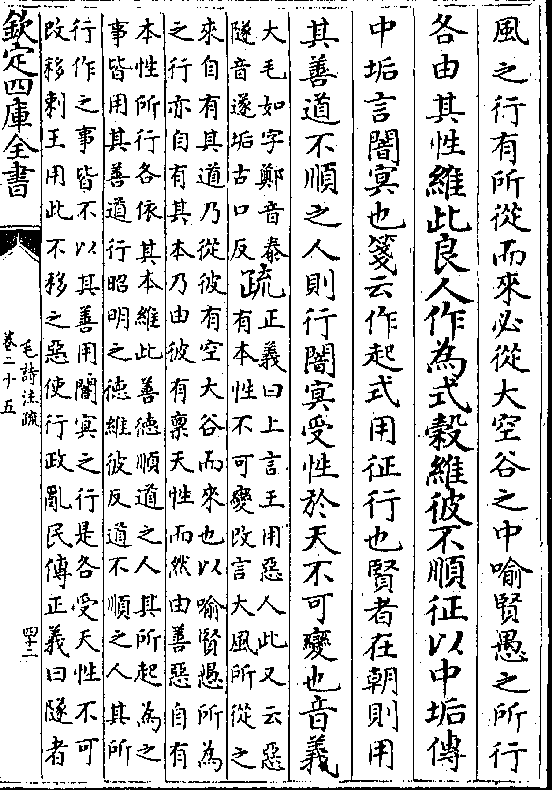 風之行有所從而來必從大空谷之中喻賢愚之所行
各由其性維此良人作為式榖維彼不順征以中垢傳
中垢言闇冥也箋云作起式用征行也賢者在朝則用
其善道不順之人則行闇冥受性於天不可變也音義
大毛如字鄭音泰
隧音遂垢古口反
疏
正義曰上言王用惡人此又云惡
有本性不可變改言大風所從之
來自有其道乃從彼有空大谷而來也以喻賢愚所為
之行亦自有其本乃由彼有稟天性而然由善惡自有
本性所行各依其本維此善德順道之人其所起為之
事皆用其善道行昭明之德維彼反道不順之人其所
行作之事皆不以其善用闇冥之行是各受天性不可
改移刺王用此不移之惡使行政亂民傳正義曰隧者
欽定四庫全書
毛詩注疏
卷二十五
四十二